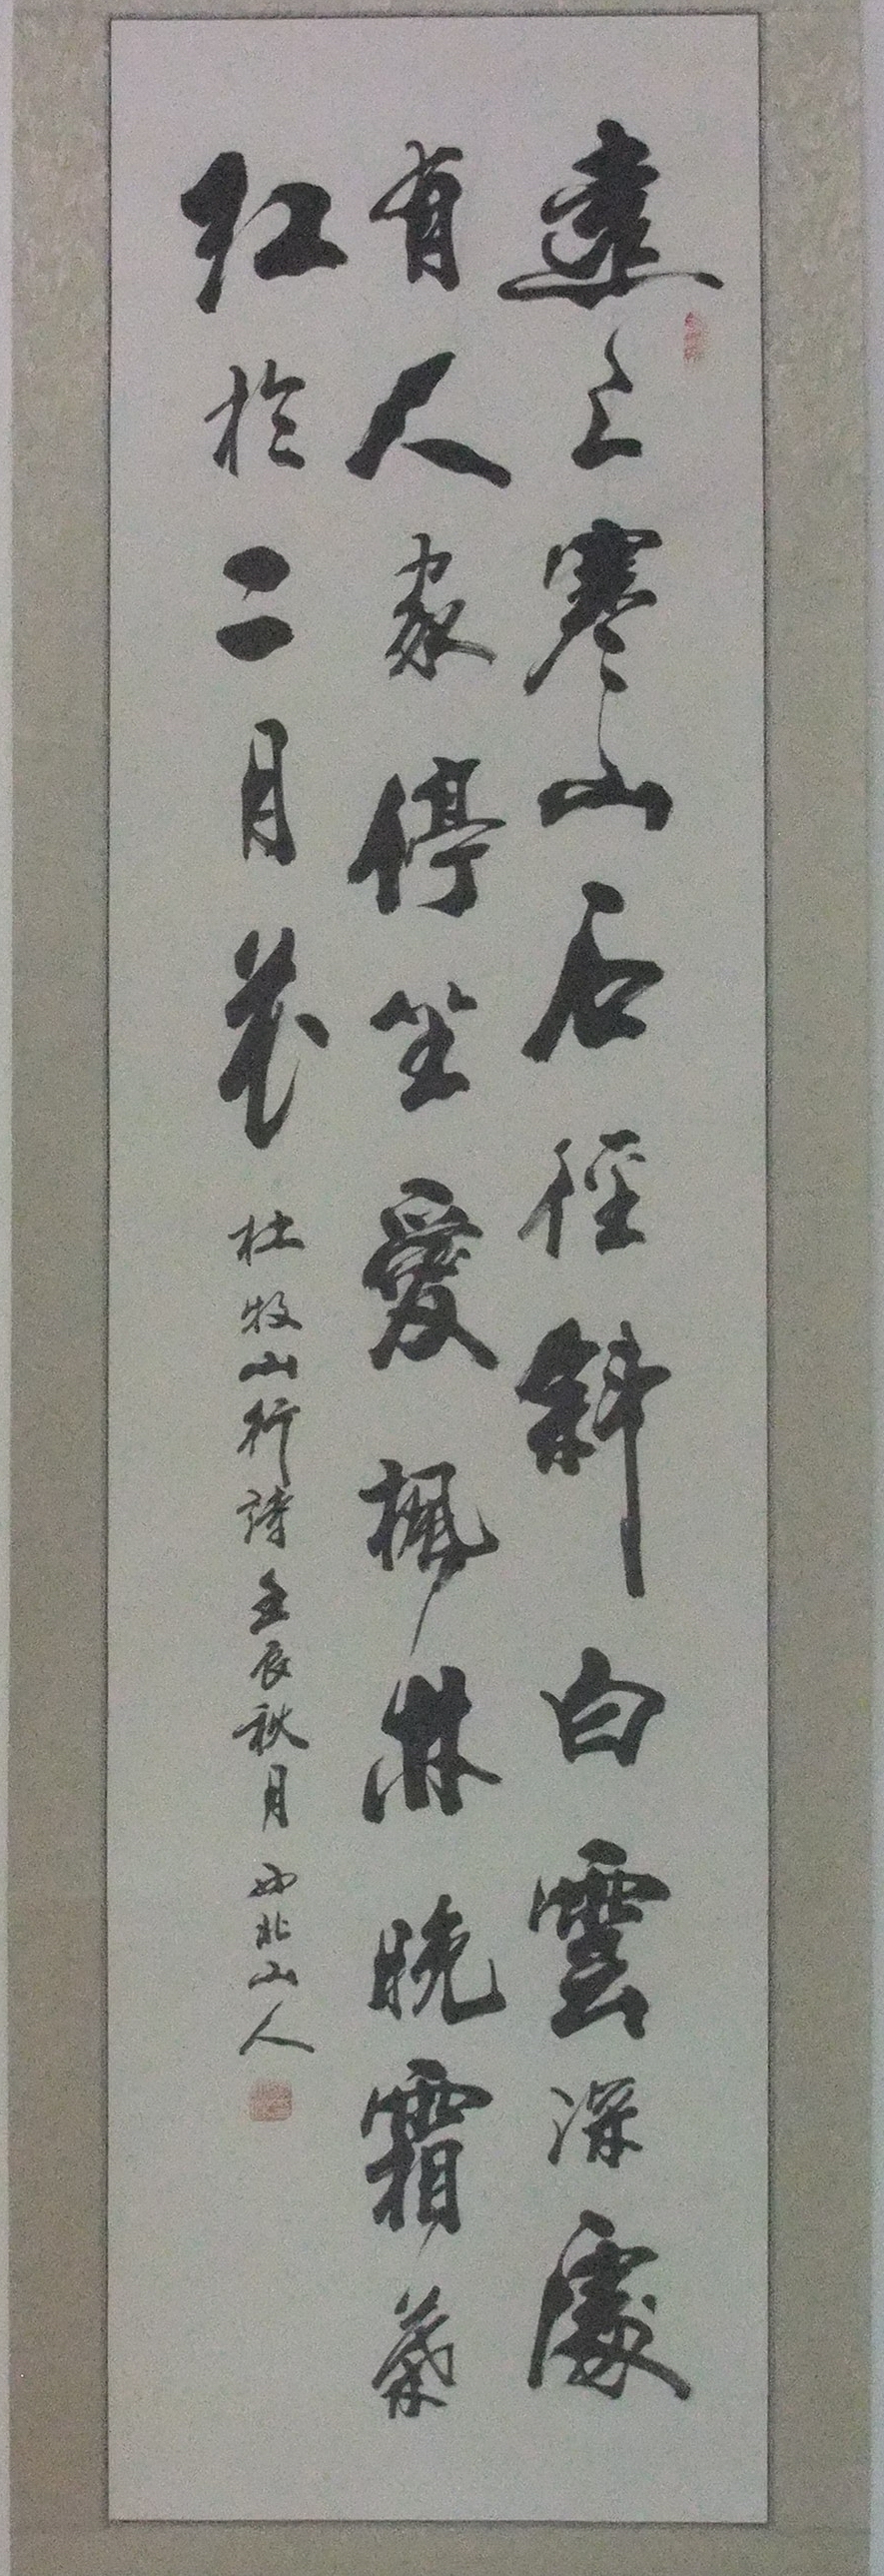 遠上寒山石徑斜白雲深處
有人家停坐愛楓林晚霜葉
紅於二月花
杜牧山行詩壬辰秋月西北山人